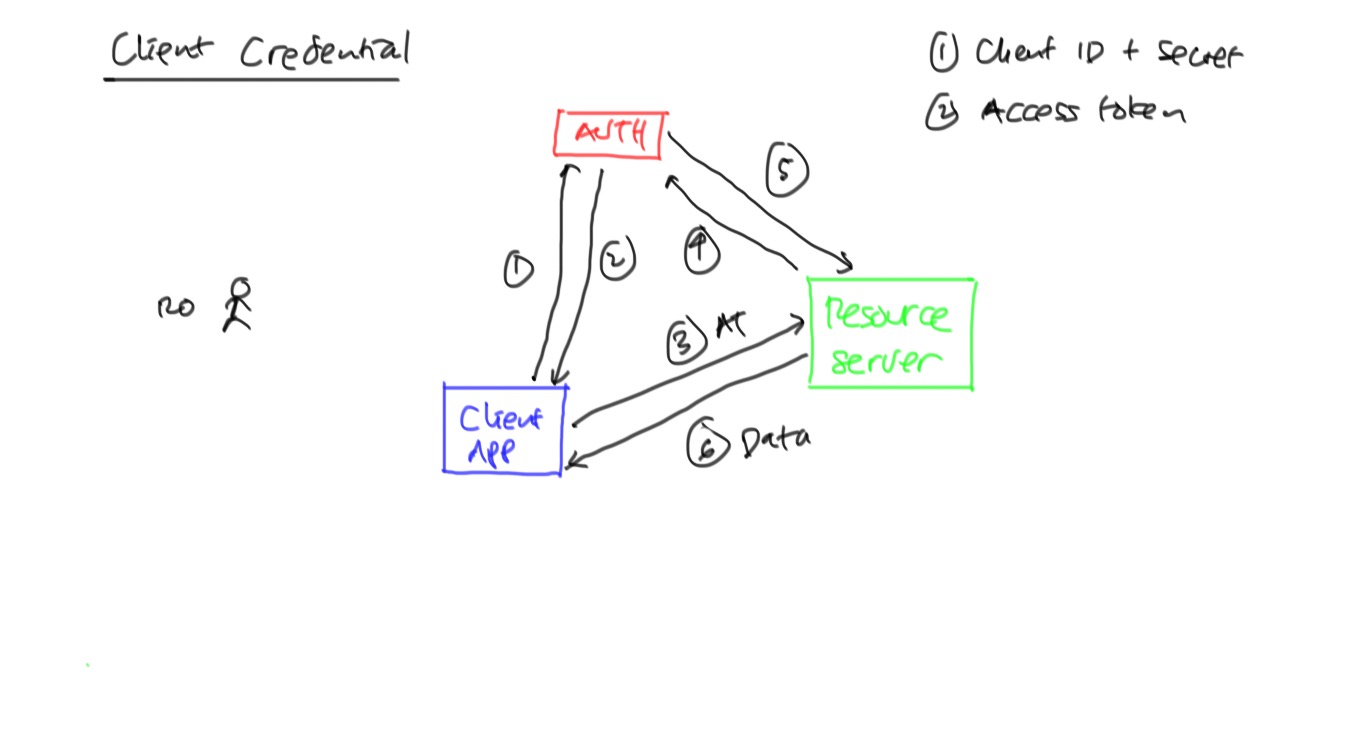 Client Credential
① Client ID + Secret
② Access token
AUTH
⑤
①
②
④
RO
③ AT
Resource
server
Client
APP
⑥ Data